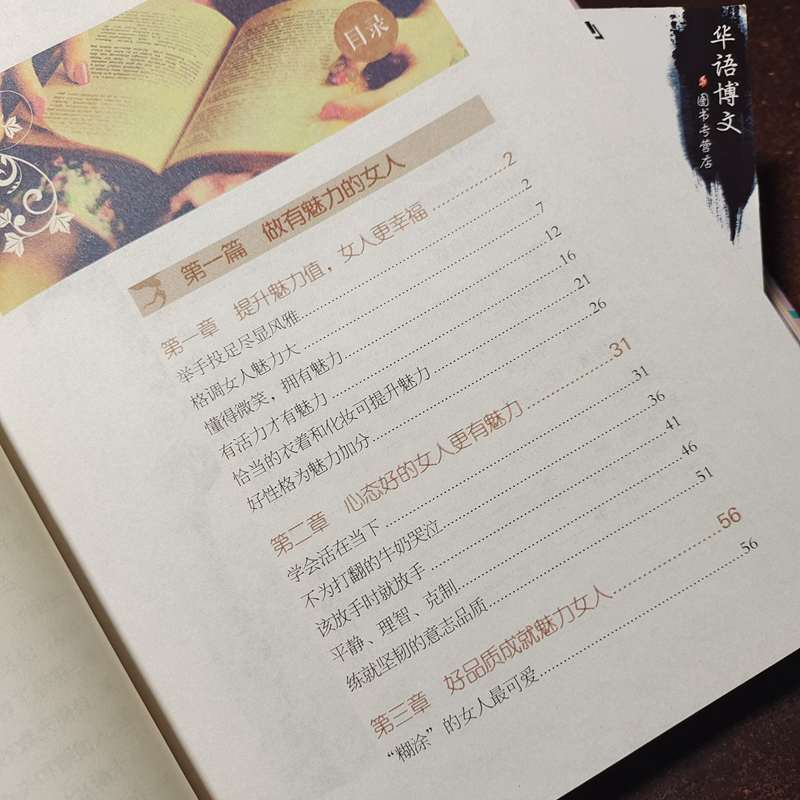 目录
华语博文
图书专营店
第一篇 做有魅力的女人
第一章 提升魅力值，女人更幸福 2
举手投足尽显风雅 2
格调女人魅力大 7
懂得微笑，拥有魅力 12
有活力才有魅力 16
恰当的衣着和化妆可提升魅力 21
好性格为魅力加分 26
第二章 心态好的女人更有魅力 31
学会活在当下 31
不为打翻的牛奶哭泣 36
该放手时就放手 41
平静、理智、克制 46
练就坚韧的意志品质 51
第三章 好品质成就魅力女人 56
“糊涂”的女人最可爱 56